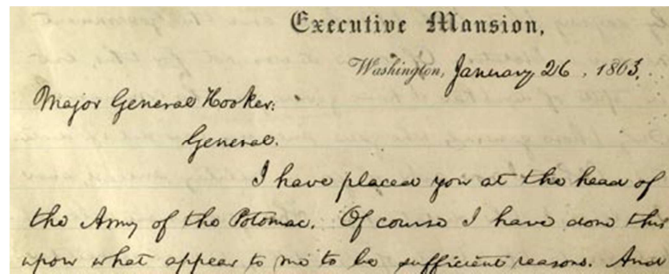 Executive Mansion,
Washington, January 26, 1863.
Major General Hooker:
General.
I have placed you at the head of
the Army of the Potomac. Of course I have done this
upon what appear to me to be sufficient reasons. And